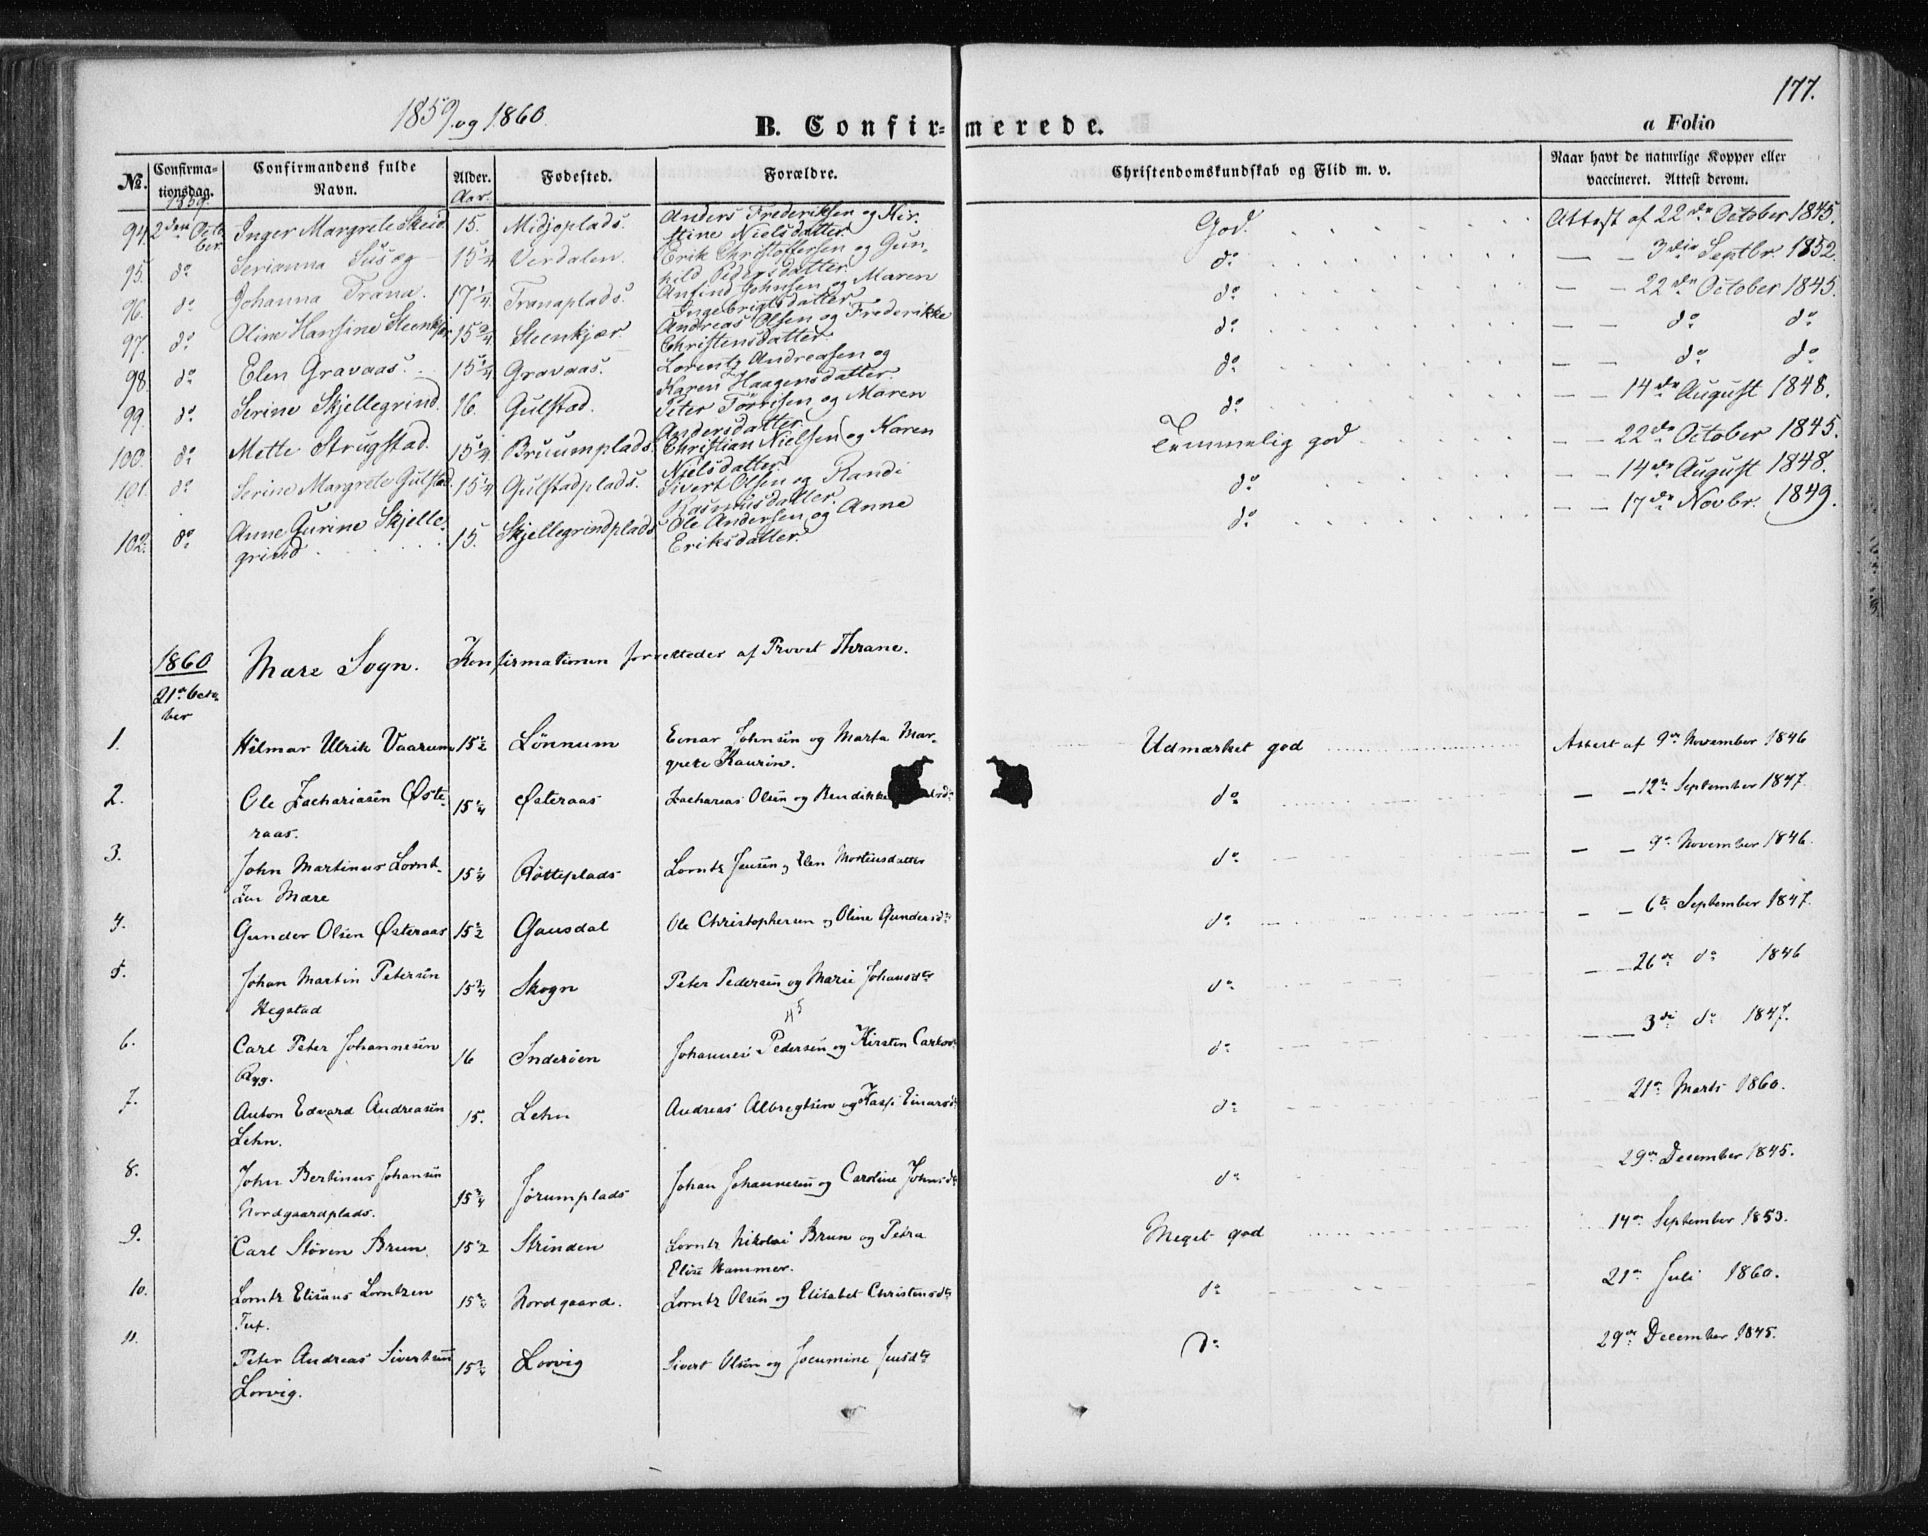 177.
1859 og 1860
B. Confirmerede.
a Folio
No. Confirmationsdag. Confirmandens fulde Navn. Alder. Fødested. Forældre. Christendomskundskab og Flid m. v. Naar havt de naturlige Kopper eller vaccineret. Attest derom.
1859. Aar.
94. 2den October Inger Margrete Skeid 15. Midjoplads. Anders Frederiksen og Kirstine Nielsdatter. God. Attest af 22de October 1845.
95. do Serianna Susæg 15 Verdalen. Erik Christoffersen og Gunhild Pedersdatter. do — — 3die Septbr. 1852.
96. do Johanna Trana. 17 1/4. Tranaplads. Anfind Johnsen og Maren Ingebrigtsdatter. do — — 22de October 1845.
97. do Oline Hansine Steenkjær 15 3/4 Steenkjær. Andreas Olsen og Frederikke Christensdatter. do — — do do
98. do Elen Gravaas. 15 Gravaas. Lorentz Andreasen og Karen Haagensdatter. do — — do do
99. do Serine Skjellegrind. 16. Gulstad. Peter Torrisen og Maren Andersdatter. do — — 14de August 1848.
100. do Mette Strugstad. 15 Bruumplads. Christian Nielsen og Karen Nielsdatter. Temmelig god — — 22de October 1845.
101. do Serine Margrete Gulstad. 15 Gulstadplads. Sivert Olsen og Randi Rasmusdatter. do — — 14de August 1848.
102. do Anne Gurine Skjellegrind 15. Skjellegrindplads Ole Andersen og Anne Eriksdatter. do — — 17de Novbr. 1849.
1860 Mære Sogn. Konfirmationen forrettedes af Provst Thrane.
21de October
1. Hilmar Ulrik Vaarum 15 1/2 Lønnum Einar Johnsen og Marta Margrete Kaurin. Udmærket god Attest af 9de November 1846
2. Ole Zachariasen Østeraas. 15 Østeraas Zacharias Olsen og Bendikke do — — 12te September 1847.
3. John Martinus Lorntzen Mære 15 Røtteplads Lorntz Jensen og Elen Mortensdatter do — — 9de November 1846.
4. Gunder Olsen Østeraas 15 1/2 Gausdal Ole Christophersen og Oline Gundersdtr do — — 6te September 1847.
5. Johan Martin Petersen Hegstad 15 3/4 Skogn Peter Pedersen og Marie Johansdtr do — — 26de do 1846
45
6. Carl Peter Johannesen Ryg. 16 Inderøen Johannes Pedersen og Kirsten Carlsdtr do — — 3die do 1847.
7. Anton Edvard Andreasen Lehn. 15. Lehn Andreas Albregtsen og Kasp. Einarsdtr do 21de Marts 1860.
8. John Bertinus Johansen Nordgaardplads. 15 3/4 Jørumplads Johan Johannesen og Caroline Johnsdtr do 29de December 1845.
9. Carl Støren Brun. 15 1/2 Strinden Lorntz Nikolai Brun og Petra Elise Hammer. Meget god 14de September 1853.
10. Lorntz Elisæus Lorntzen Tuf. 15 Nordgaard. Lorntz Olsen og Elisabet Christensdtr do 21de Juli 1860.
11. Peter Andreas Sivertsen Lorvig. 15 3/4 Lorvig Sivert Olsen og Jocumine Jensdtr do 29de December 1845.